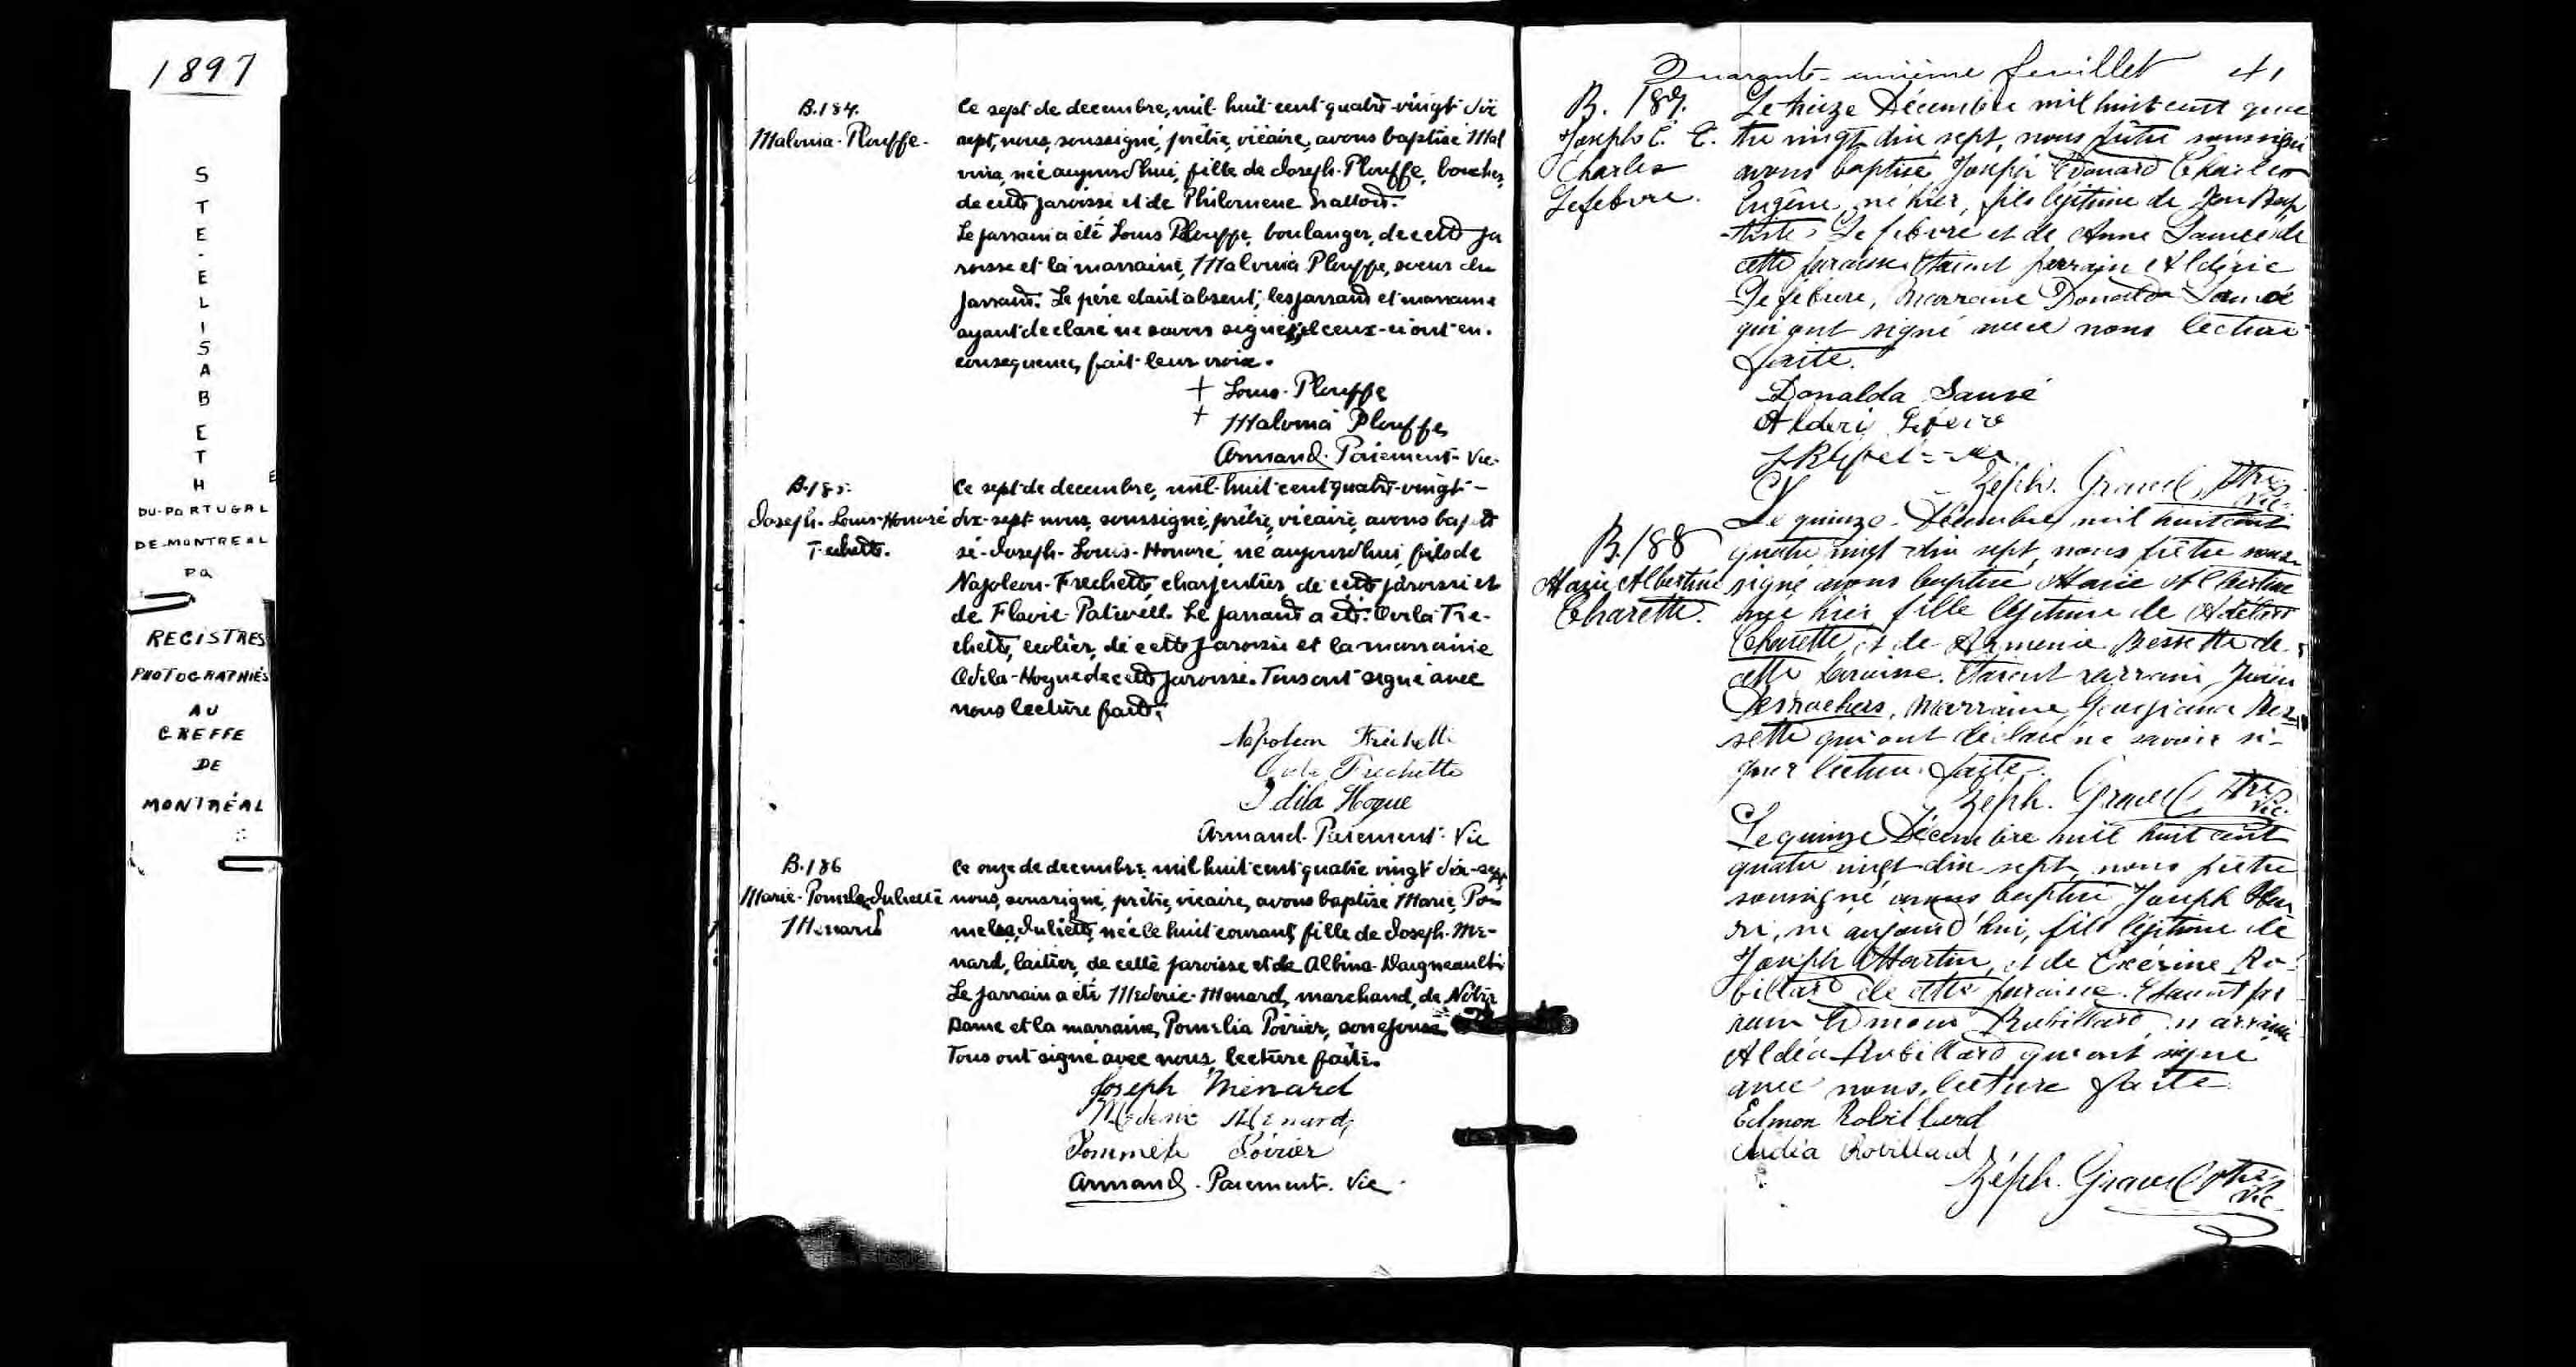 1897
STE-ELISABETH
DU-PORTUGAL
DE-MONTREAL
PQ
REGISTRES
PHOTOGRAPHIÉS
AU
GREFFE
DE
MONTRÉAL
B.184.
Malvina-Plouffe-
Ce sept de decembre, mil-huit-cent quatre-vingt dix
sept, nous, soussigné, prêtre, vicaire, avons baptisé Mal
vina, née aujourd'hui, fille de Joseph-Plouffe, boucher,
de cette paroisse et de Philomene
Le parrain a été Louis Plouffe, boulanger, de cette pa
roisse et la marraine, Malvina Plouffe, soeur du
parrain. Le père etant absent, les parrain et marraine
ayant declaré ne savoir signer, ceux-ci ont en
consequence, fait leur croix.
+ Louis-Plouffe
+ Malvina Plouffe
Armand-Paiement-Vic-
B.185.
Joseph-Louis-Honoré
Frechette.
Ce sept de decembre, mil-huit cent quatre-vingt-
dix-sept nous, soussigné, prêtre, vicaire, avons bapti
sé-Joseph-Louis-Honoré, né aujourd'hui, fils de
Napoleon-Frechette, charpentier, de cette paroisse et
de Flavie- Le parrain a été Fre-
chette, ecolier, de cette paroisse et la marraine
Odila-Hogue de cette paroisse. Tous ont signé avec
nous lecture faite.
Napoleon Frechette
Frechette
Odila Hogue
Armand-Paiement-Vic
B.186
Marie-Pomela Juliette
Menard
Ce onze de decembre, mil huit cent quatre vingt dix-sept
nous, soussigné, prêtre, vicaire, avons baptisé Marie, Po
mela, Juliette, née le huit courant, fille de Joseph-Me-
nard, laitier, de cette paroisse et de Albina-Daigneault
Le parrain a été Mederic-Menard, marchand, de Notre
Dame et la marraine, Pomelia Poirier, son epouse
Tous ont signé avec nous, lecture faite.
Joseph Menard
Mederic Menard
Poirier
Armand-Paiement. Vic.
Quarante-unième feuillet 41
B. 187.
Joseph E. E.
Charles
Lefebvre.
Le treize Décembre mil huit cent qua
tre vingt dix sept, nous prêtre soussigné
avons baptisé Joseph Edouard Charles
Eugène, né hier, fils légitime de Jean Bap
-tiste Lefebvre et de Anne Sauvé de
cette paroisse. Etaient parrain Aldéric
Lefebvre, Marraine Donalda Sauvé
qui ont signé avec nous lecture
faite.
Donalda Sauvé
Aldéri
Zéph. Gravel, Ptre
Vic.
B. 188
Marie Albertine
Charette.
Le quinze Décembre mil huit cent
quatre vingt dix sept, nous prêtre sous-
signé avons baptisé Marie Albertine
née hier fille légitime de Adélard
Charette, et de Armenie Bessette de
cette paroisse. Etaient parrain,
Desrochers, Marraine, Georgiana Bes-
sette qui ont déclaré ne savoir si-
gner lecture faite.
Zéph. Gravel, Ptre
Vic.
Le quinze Décembre mil huit cent
quatre vingt dix sept, nous prêtre
soussigné avons baptisé Joseph Hen
ri, né aujourd'hui, fils légitime de
Joseph Martin, et de Exérine Ro-
billard de cette paroisse. Etaient par
rain Edmond Robillard, marraine
Aldéa Robillard qui ont signé
avec nous, lecture faite.
Edmon Robillard
Aldéa Robillard
Zéph. Gravel Ptre
Vic